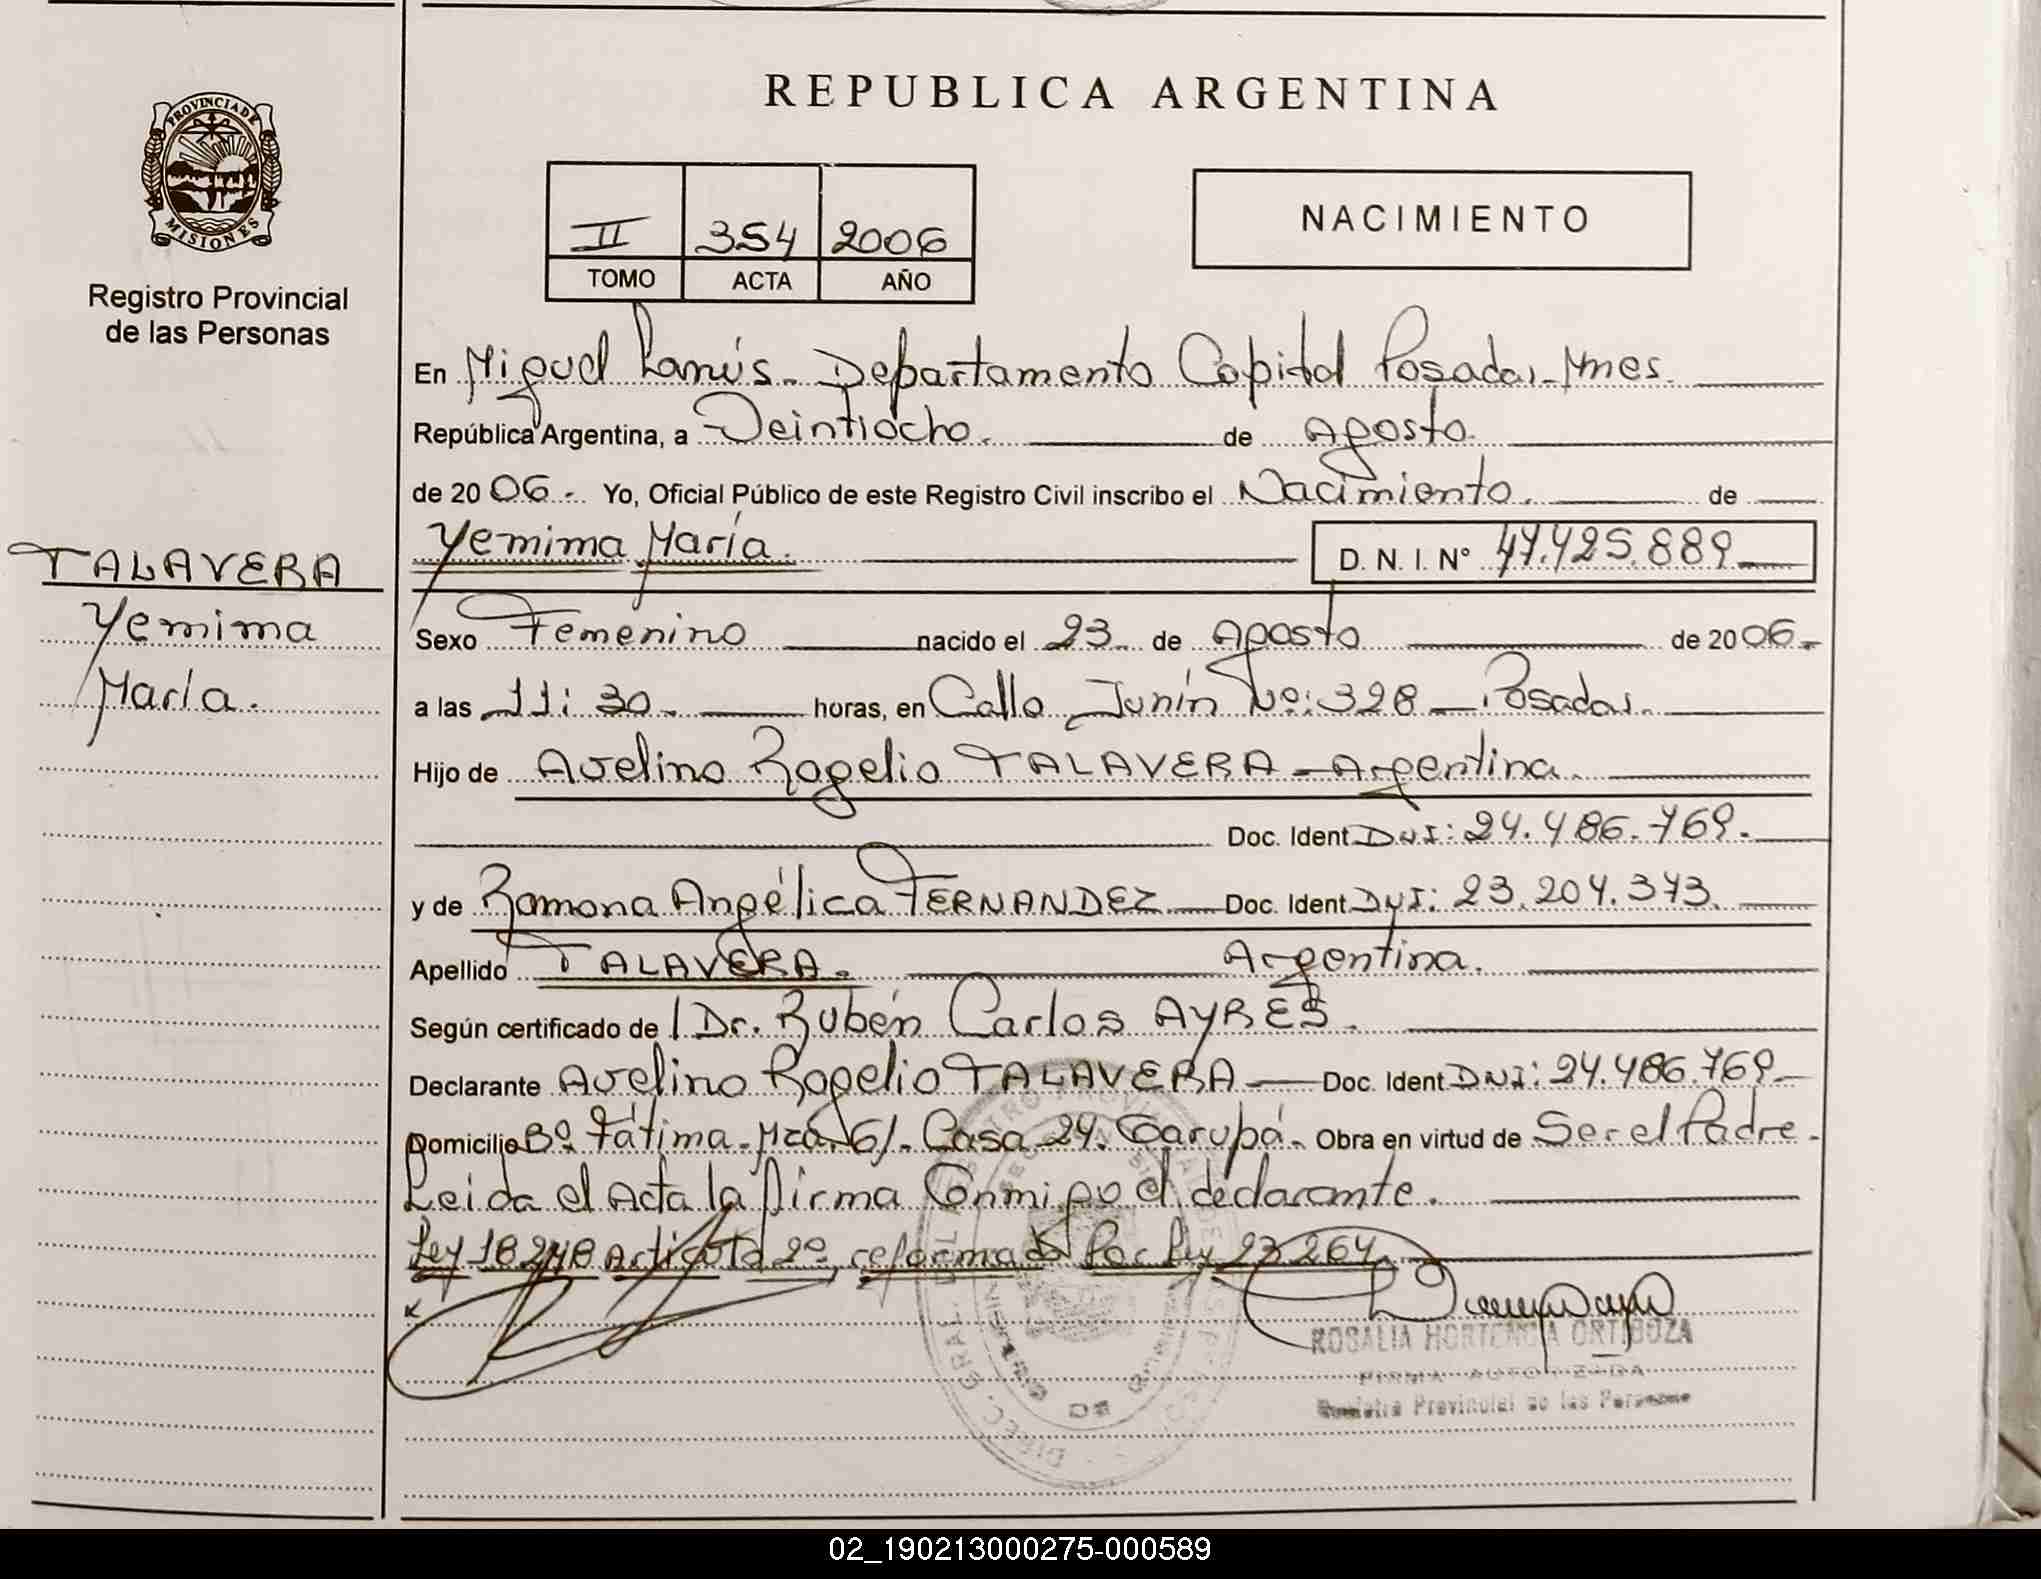 REPUBLICA ARGENTINA
PROVINCIA DE
MISIONES
Registro Provincial
de las Personas
II 354 2006
TOMO ACTA AÑO
NACIMIENTO
En Miguel Lanús. Departamento Capital Posadas. Mnes.
República Argentina, a Veintiocho. de Agosto
de 2006. Yo, Oficial Público de este Registro Civil inscribo el Nacimiento. de
TALAVERA
Yemima
María.
Yemima María. D. N. I. Nº 47.425.889
Sexo Femenino nacido el 23 de Agosto de 2006.
a las 11:30. horas, en Calle Junín Nº: 328 - Posadas.
Hijo de Avelino Rogelio TALAVERA - Argentina.
Doc. Ident DNI: 24.486.769.
y de Ramona Angélica FERNANDEZ Doc. Ident DNI: 23.204.373.
Apellido TALAVERA. Argentina.
Según certificado de / Dr. Rubén Carlos AYRES.
Declarante Avelino Rogelio TALAVERA Doc. Ident DNI: 24.486.769
Domicilio Bº Fátima. Mza. 6/. Casa 24. Garupá. Obra en virtud de Ser el Padre.
Leida el Acta la firma Conmigo el declarante.
Ley 18248 Articulo 2º, reformado Por Ley 23264.
ROSALIA HORTENCIA ORTIGOZA
FIRMA AUTORIZADA
Registro Provincial de las Personas
02_190213000275-000589